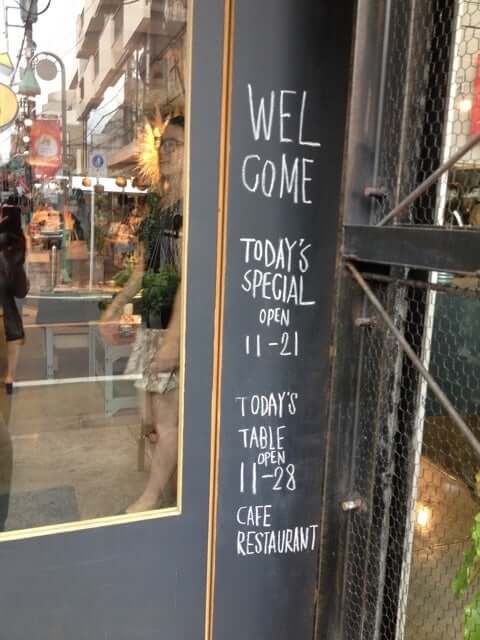 WEL
COME
TODAY'S
SPECIAL
OPEN
11-21
TODAY'S
TABLE
OPEN
11-28
CAFE
RESTAURANT